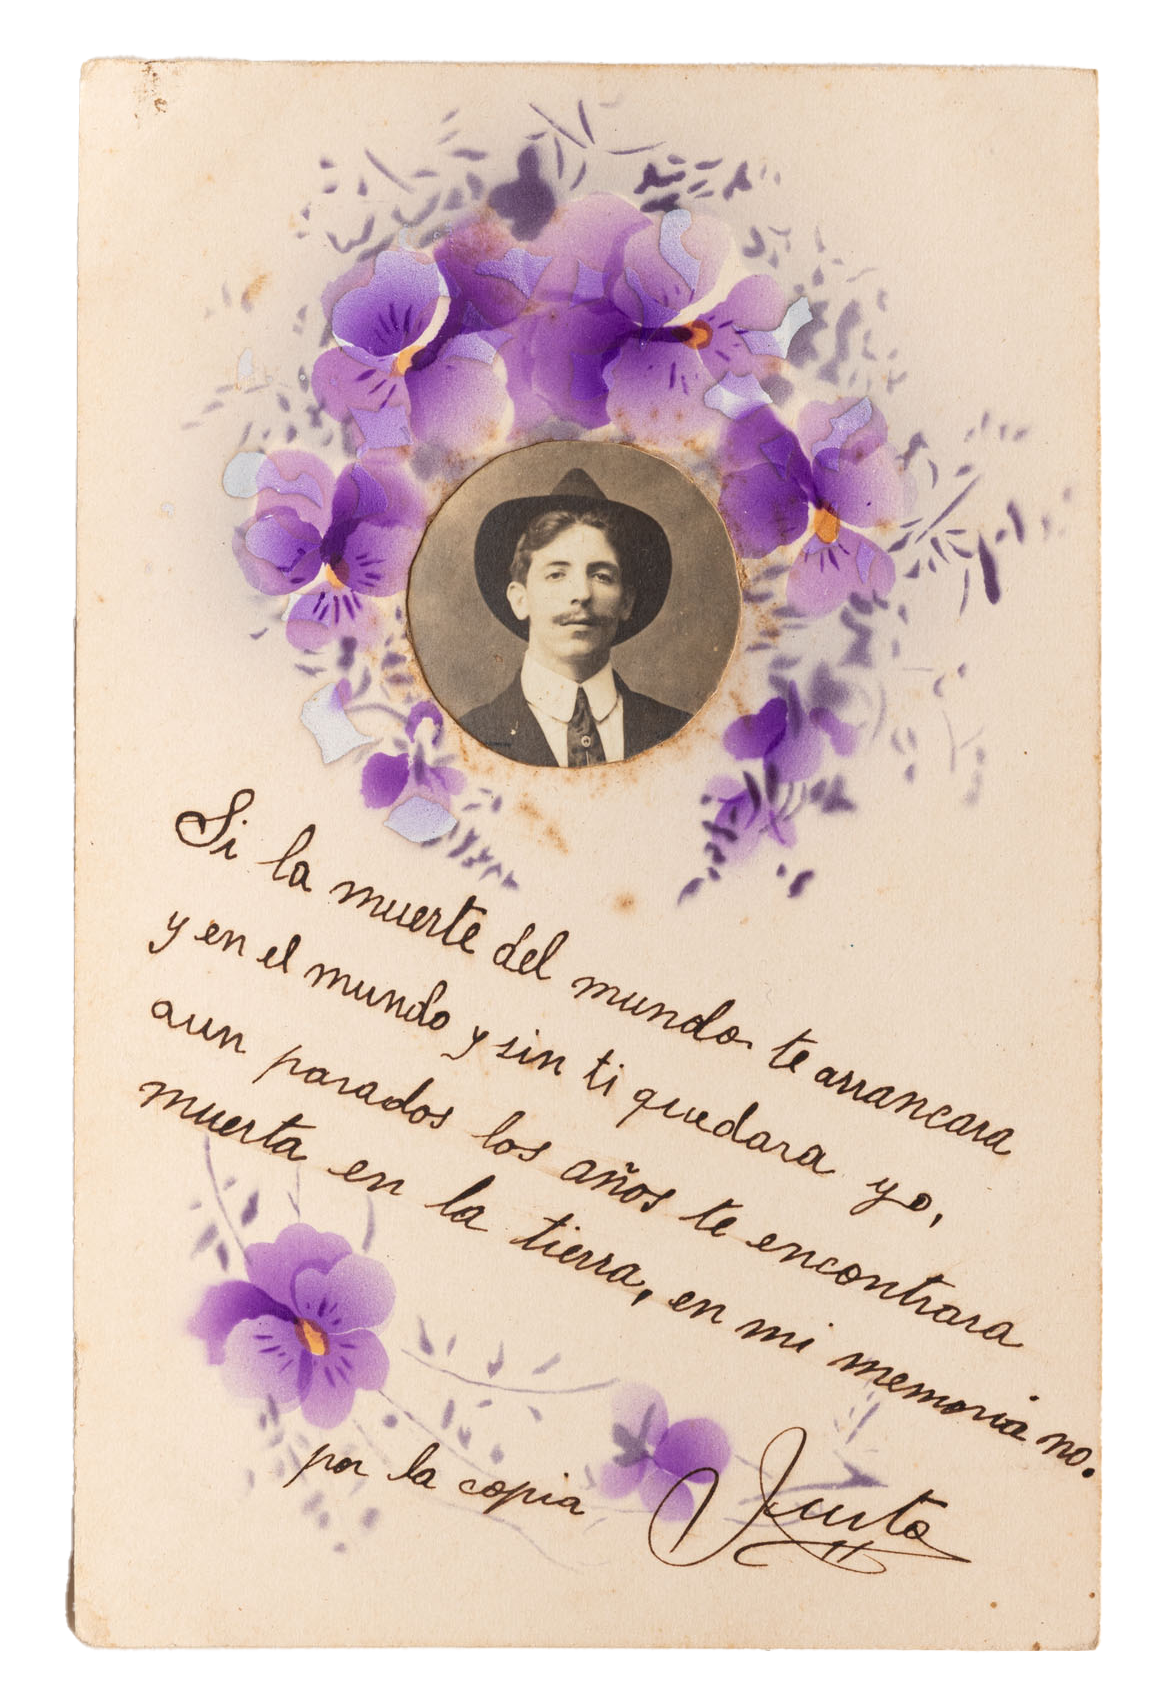 Si la muerte del mundo te arrancara
y en el mundo y sin ti quedara yo,
aun parados los años te encontrara
muerta en la tierra, en mi memoria no.
por la copia Justo